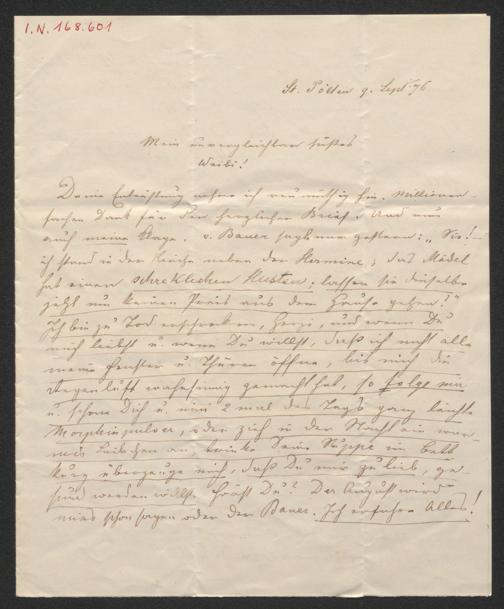 I.N. 168.601
St. Pölten 9. Sept. 76
Mein unvergleichbar süßes
Weibi!
Deine Entrüstung nehme ich reumüthig hin. Millionen-
fachen Dank für den herzlichen Brief. Und nun
auch meine Klage. v. Bauer sagt mir gestern: „Sie! –
ich stand in der Kirche neben der Hermine; das Mädel
hat einen schreklichen Husten; lassen sie dieselbe
jetzt um keinen Preis aus dem Hause gehen!"
Ich bin zu Tod erschrocken, Herzi, und wenn Du
mich liebst u. wenn Du willst, daß ich nicht alle
meine Fenster u. Thüren öffne, bis mich die
Regenluft wahnsinnig gemacht hat, so folge mir
u. schone Dich u. nim 2 mal des Tags ganz leichte
Morphinpulver, oder zieh in der Nacht ein war-
mes Leibchen an, trinke Deine Suppe im Bett
kurz überzeuge mich, daß Du mir zu lieb, ge-
sund werden willst. Hörst Du? Der August wird
mirs schon sagen oder der Bauer. Ich erfahre Alles!